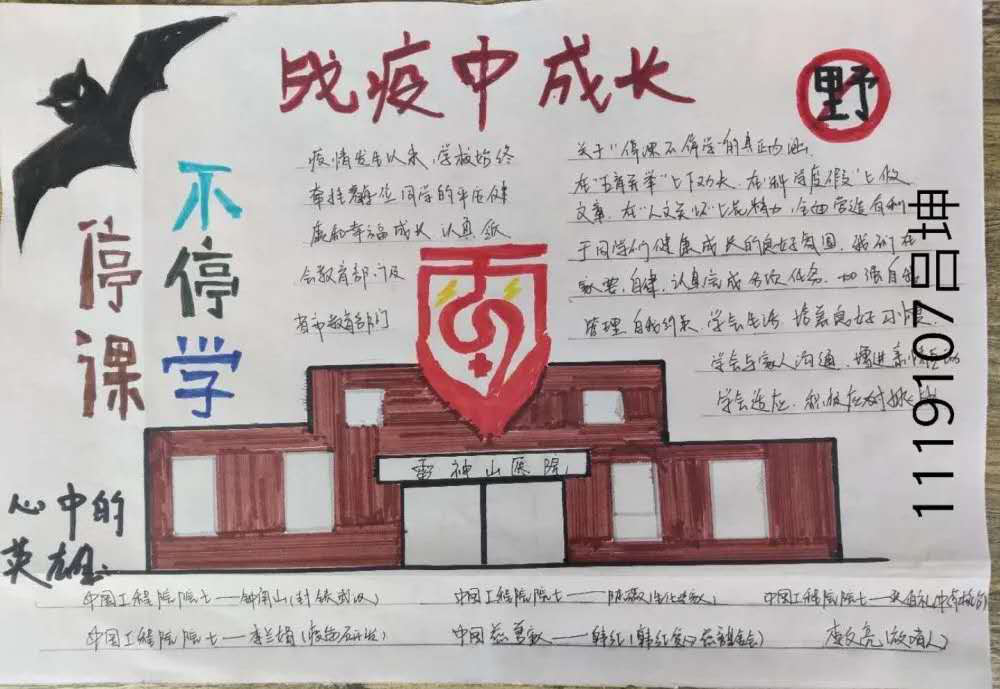 战疫中成长
野
不停学
停课
疫情发生以来,学校始终
牵挂着每一位同学的平应健
康和幸福成长,认真
会教育部、
省市教育部门
关于“停课不停学”的真正内涵,
在“五育并举”上下功夫,在“科学度假”上做
文章,在“人文关怀”上花精力,全面营造有利
于同学们健康成长的良好氛围,我们在
家要,自律,认真完成各项任务,加强自我
管理,自我约束,学会生活,培养良好习惯,
学会与家人沟通,增进亲情
学会适应,积极应对
1119107吕坤
雷神山医院
心中的
英雄:
中国工程院院士——钟南山(封锁武汉)
中国工程院院士——陈薇
中国工程院院士——
中国工程院院士——李兰娟(疫苗研发)
中国慈善家——韩红(韩红爱心慈善基金会)
李文亮(吹哨人)